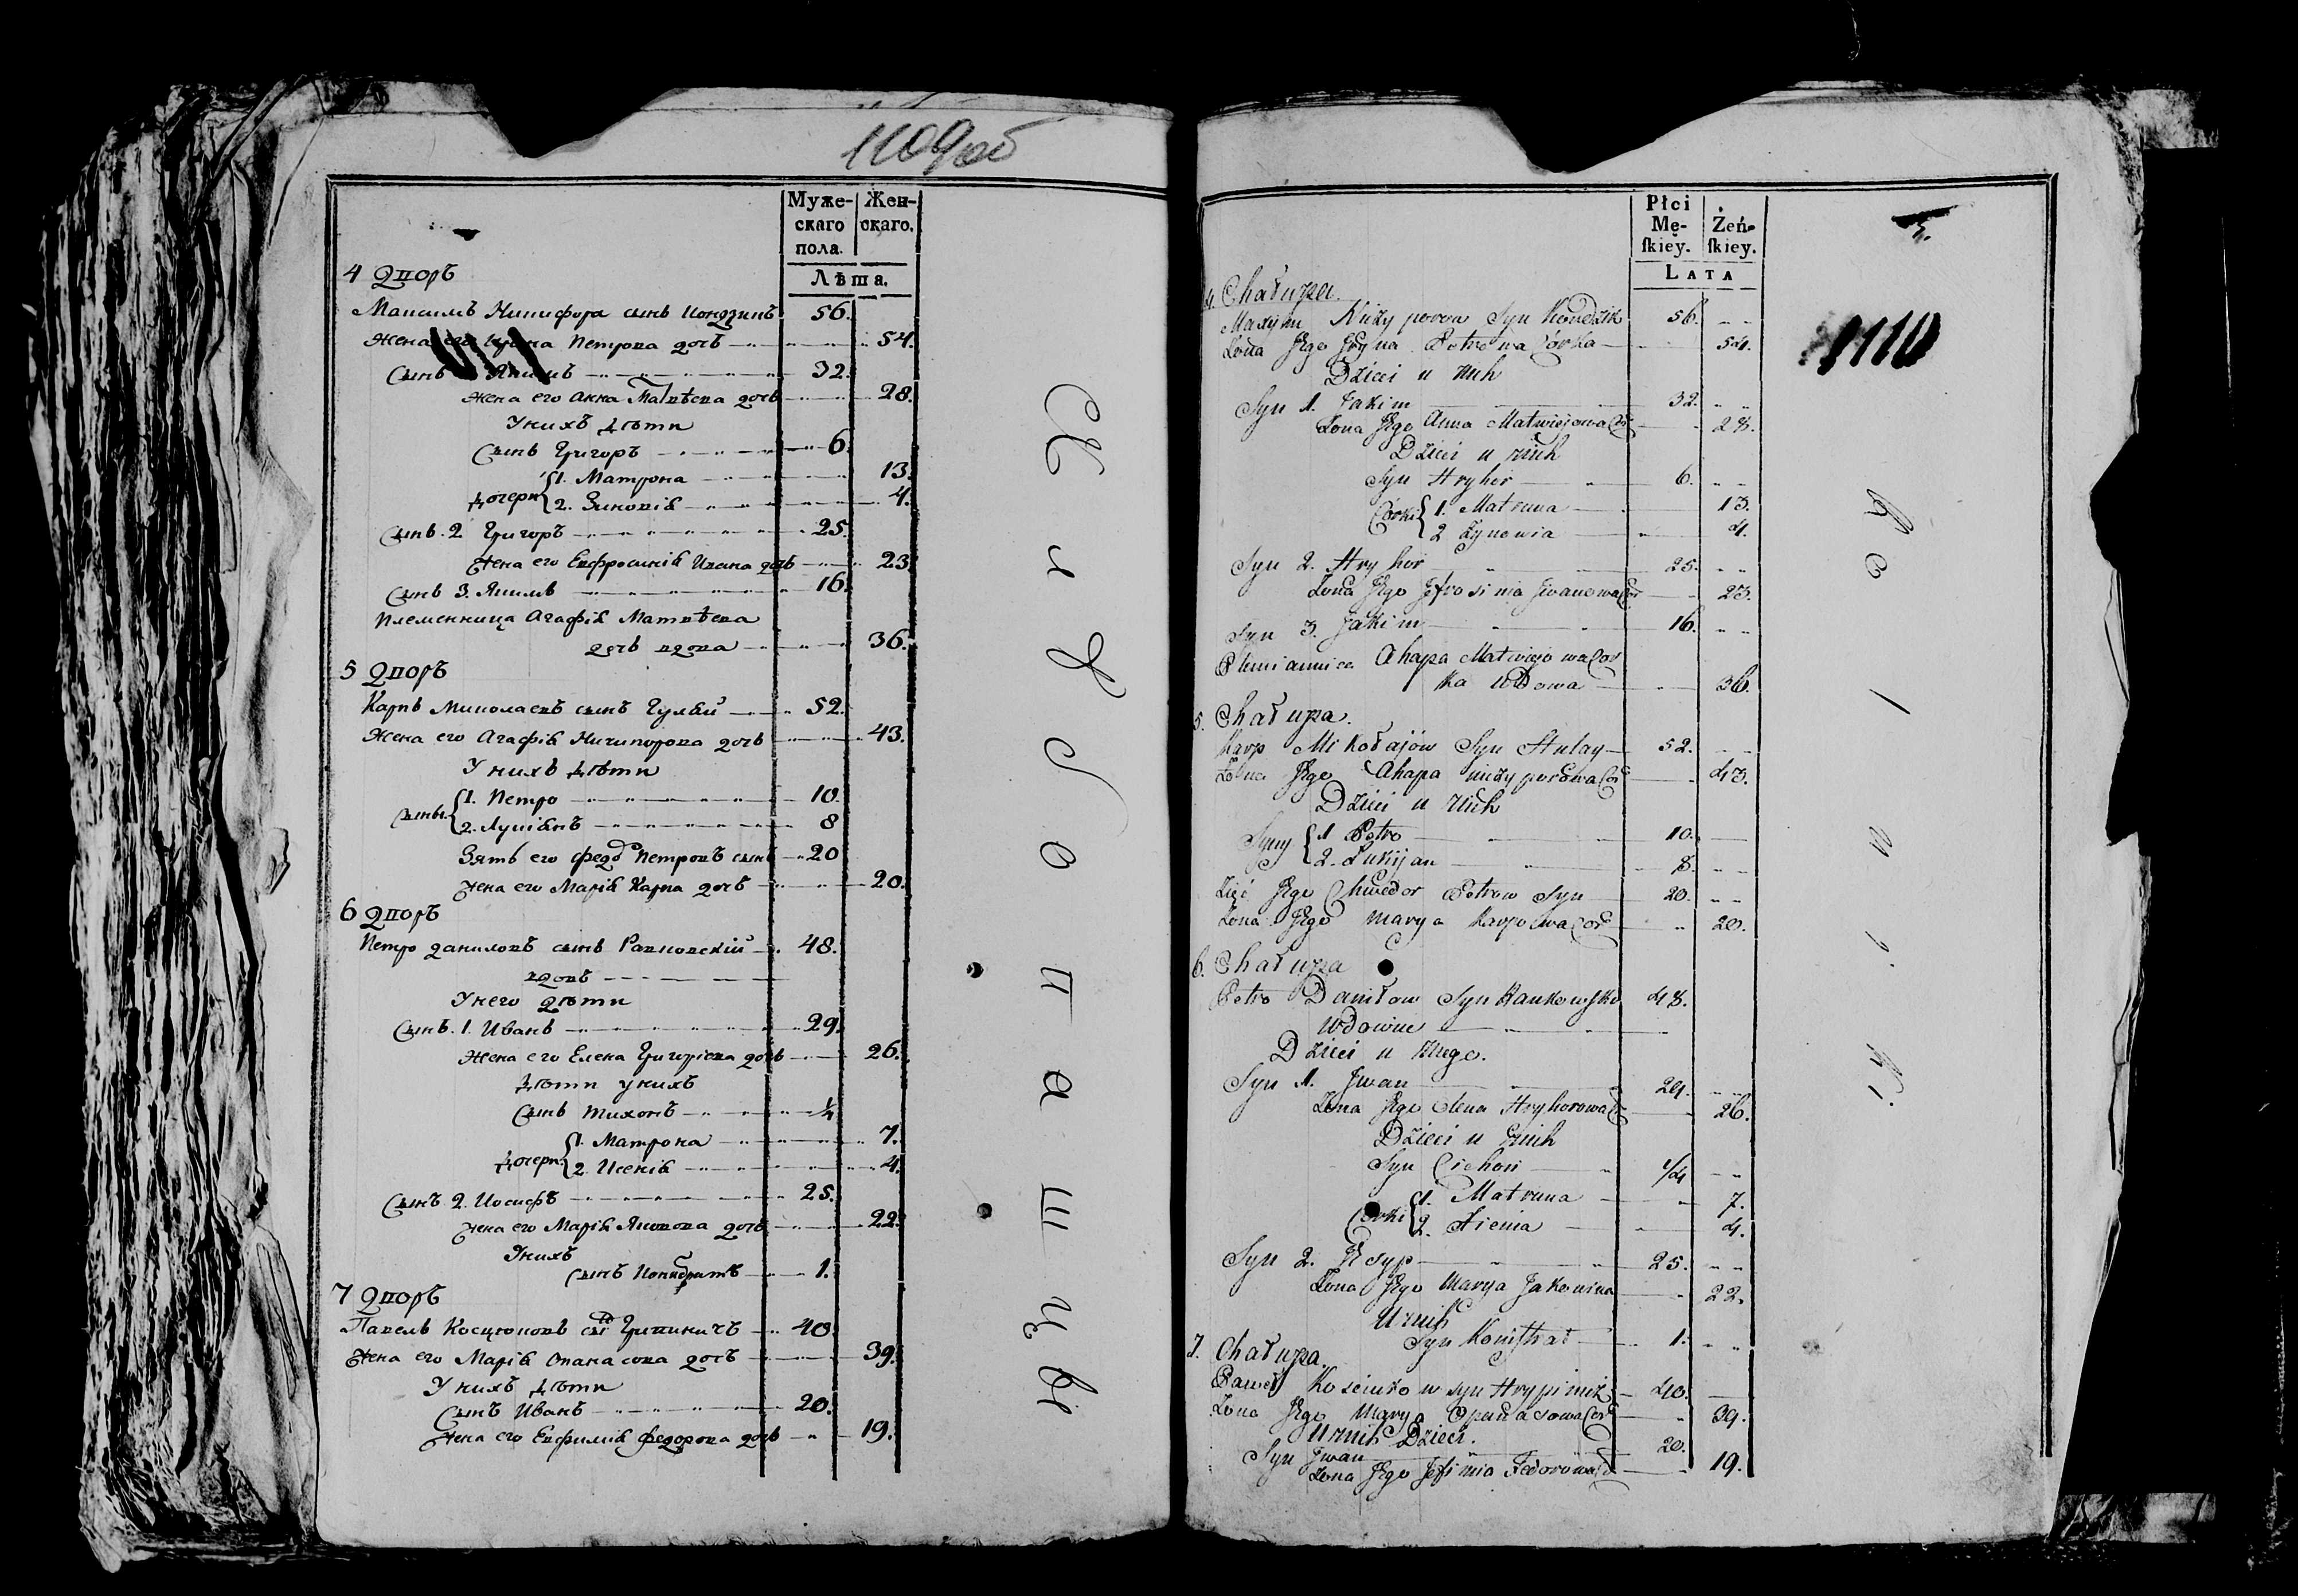 1109об
Муже-
скаго
пола.
Жен-
скаго.
Лѣта.
4 Дворъ
Максимъ Никифора сынъ Кондзикъ 56.
жена его Ирина Петрова дочь 54.
Сынъ Якимъ 32.
жена его Анна Матвѣева дочь 28.
У нихъ дѣти
Сынъ Григоръ 6.
дочери 1. Матрона 13.
2. Зиновія 4.
Сынъ. 2 Григоръ 25.
жена его Евфросинія Ивана дочь 23.
Сынъ 3. Якимъ 16.
Племенница Агафія Матвѣева
дочь вдова 36.
5 Дворъ
Карпъ Миколаевъ сынъ Гулай 52.
Жена его Агафія Ничипорова дочь 43.
У нихъ дѣти
Сыны 1. Петро 10.
2. Лукіянъ 8
Зять его Федоръ Петровъ сынъ 20
жена его Марія Карпа дочь 20.
6 Дворъ
Петро Даниловъ сынъ Равковскій 48.
вдовъ
У него дѣти
Сынъ. 1. Иванъ 29.
жена его Елена Григоріева дочь 26.
дѣти у нихъ
Сынъ Тихонъ 1/4
дочери 1. Матрона 7.
2. Ксенія 4.
Сынъ 2. Иосифъ 25.
жена его Марія Яковова дочь 22.
У нихъ
сынъ Кондратъ 1.
7 Дворъ
Павелъ Косцюковъ сынъ Грипиничъ 40.
жена его Марія Опанасова дочь 39.
У нихъ дѣти
Сынъ Иванъ 20.
жена его Евфимія Федорова дочь 19.
Płci
Mę-
ſkiey.
Żeń-
ſkiey.
LATA
1110
4. Chałupa.
Maxym Niczyporow Syn Kondzik 56.
Żona Jego Jryna Petrowa Corka 54.
Dzieci u nich
Syn 1. Jakim 32.
Żona Jego Anna Matwiejowa Cor 28.
Dzieci u nich
Syn Hryhor 6.
Corki 1. Matruna 13.
2 Zynowia 4.
Syn 2. Hryhor 25.
Żona Jego Jefrosinia Jwanowa Cor 23.
Syn 3. Jakim 16.
Plemiannica Ahapa Matwiejowa Cor
ka Wdowa 36.
5. Chałupa.
Karp Mikołajów Syn Hulay 52.
Żona Jego Ahapa Niczyporowa Cor 43.
Dzieci u nich
Syny 1 Petro 10.
2. Łukijan 8.
Zięć Jego Chwedor Petrow Syn 20.
Żona Jego Marya Karpowa Cor 20.
6. Chałupa
Petro Daniłow Syn Raukowski 48.
Wdowiec
Dzieci u niego.
Syn 1. Jwan 29.
Żona Jego Olena Hryhorowa C 26.
Dzieci u nich
Syn Cichon 1/4
Corki 1. Matruna 7.
2. Xienia 4.
Syn 2. Josyp 25.
Żona Jego Marya Jakowiwa 22.
U nich
Syn Kondrat 1.
7. Chałupa.
Paweł Kosciukow syn Hrypinicz 40.
Żona Jego Marya Opanasowa Cor 39.
U nich Dzieci.
Syn Jwan 20.
Żona Jego Jefimia Fedorowa C 19.